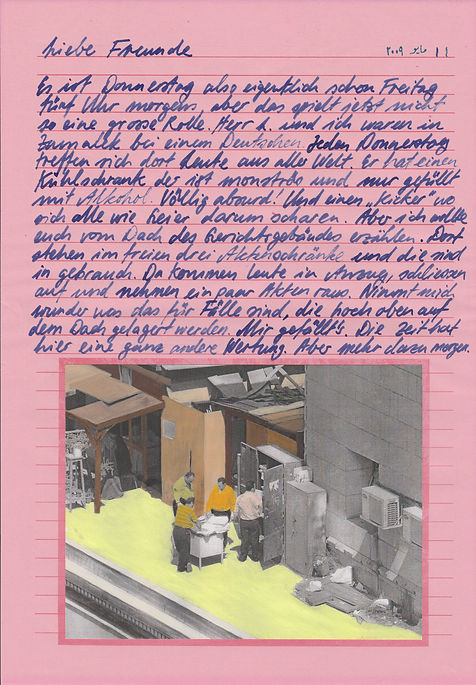 Liebe Freunde
11 مايو ٢٠٠٩
Es ist Donnerstag also eigentlich schon Freitag
fünf Uhr morgens, aber das spielt jetzt nicht
so eine grosse Rolle. Herr K. und ich waren in
Zamalek bei einem Deutschen. Jeden Donnerstag
treffen sich dort Leute aus aller Welt. Er hat einen
Kühlschrank der ist monströs und nur gefüllt
mit Alkohol. Völlig absurd! Und einen „Kicker" wo
sich alle wie Geier darum scharen. Aber ich wollte
euch vom Dach des Gerichtsgebäudes erzählen. Dort
stehen im freien drei Aktenschränke und die sind
in gebrauch. Da kommen Leute in Anzug, schliessen
auf und nehmen ein paar Akten raus. Nimmt mich
wunder was das für Fälle sind, die hoch oben auf
dem Dach gelagert werden. Mir gefällt's. Die Zeit hat
hier eine ganz andere Wertung. Aber mehr davon morgen.